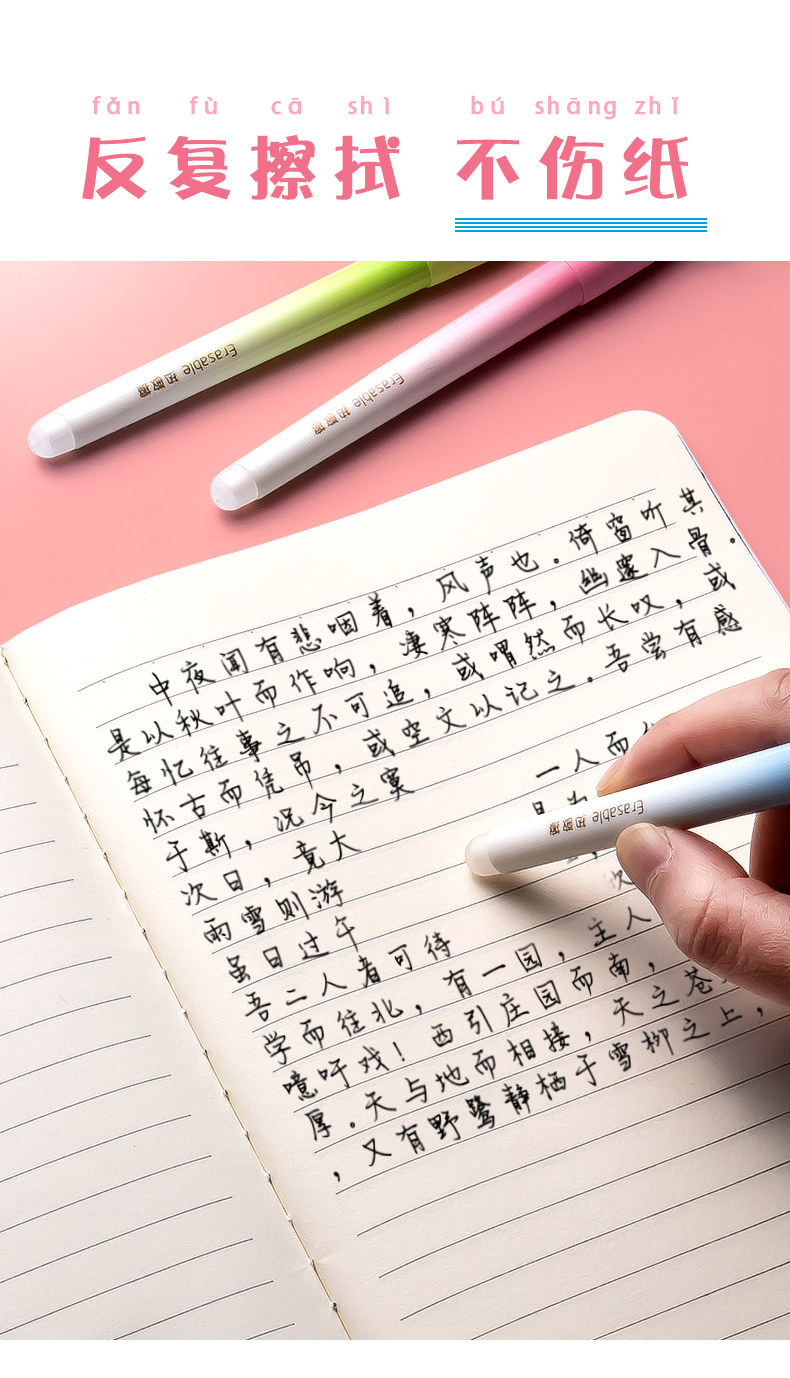 fǎn fù cā shì bú shāng zhǐ
反复擦拭 不伤纸
Erasable 热敏摩
Erasable 热敏摩
中夜闻有悲咽着，风声也.倚窗听其
是以秋叶而作响，凄寒阵阵，幽邃入骨.
每忆往事之不可追，或喟然而长叹，或
怀古而凭吊，或空文以记之.吾尝有感
于斯，况今之寞 一人而
次日，竟大
Erasable 热敏摩
雨雪则游
虽日过午
吾二人者可待
学而往北，有一园，主人
噫吁戏！西引庄园而南，
厚.天与地而相接，天之苍
，又有野鹭静栖于雪柳之上，